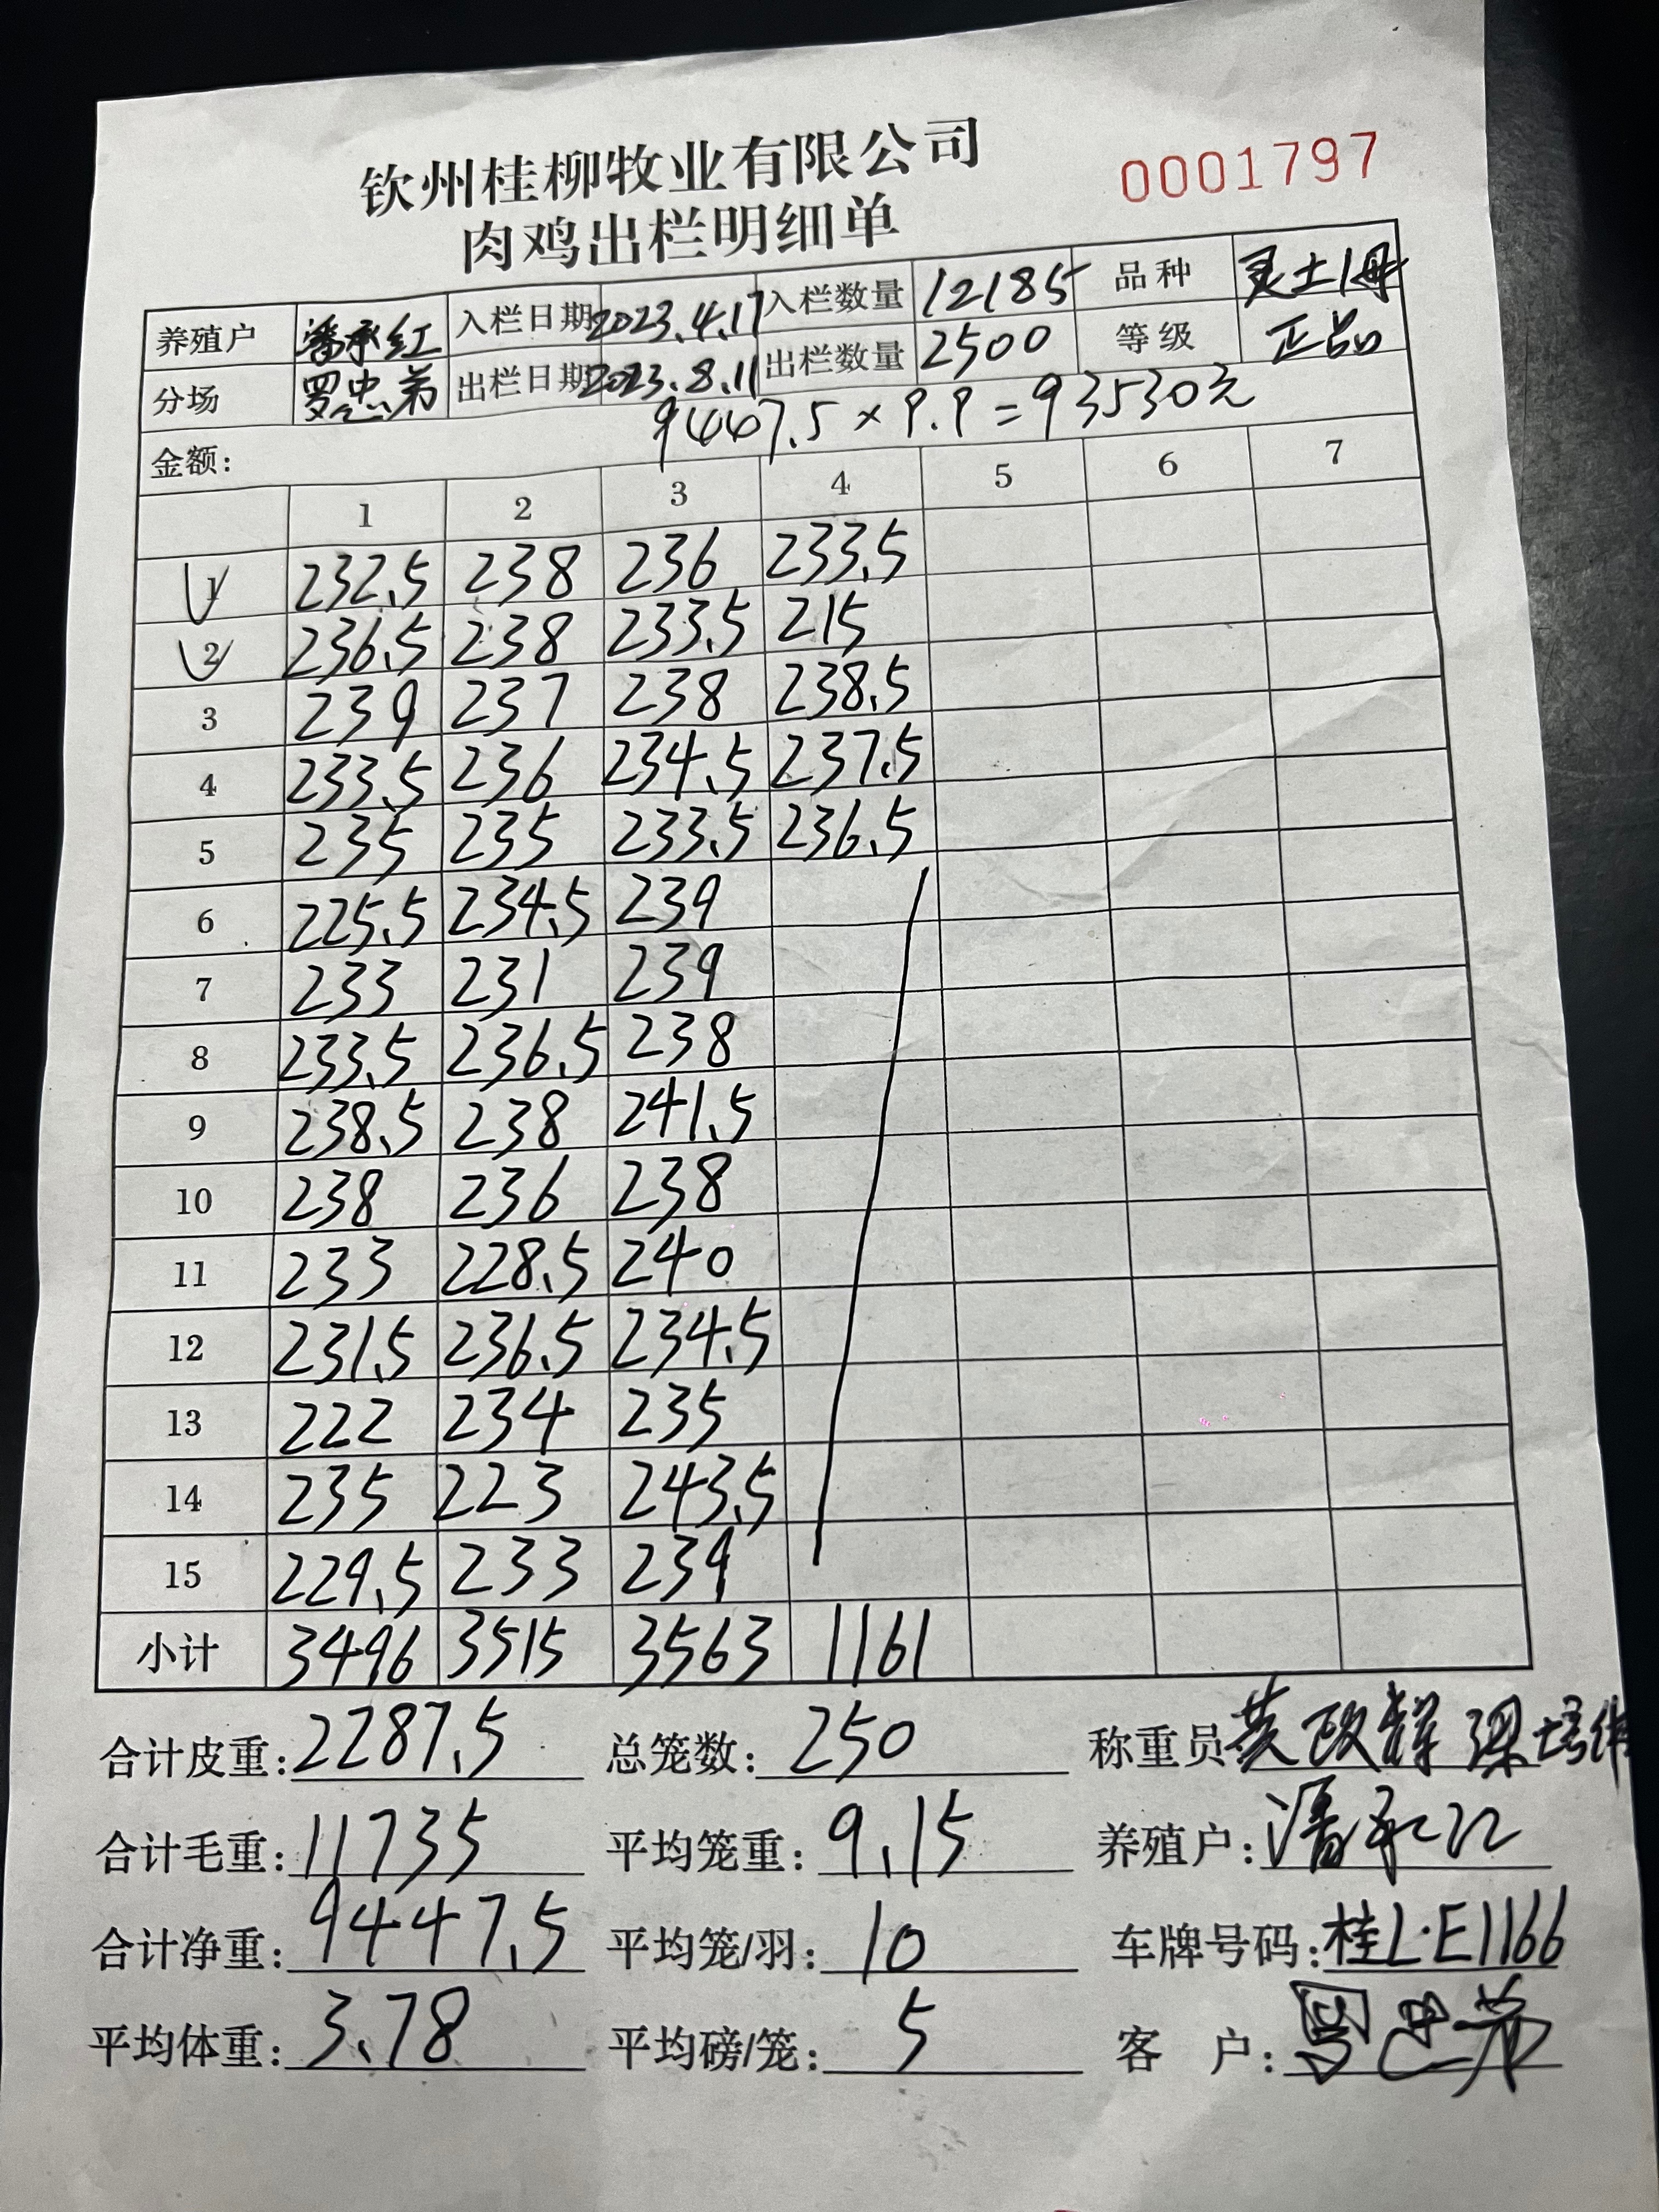 钦州桂柳牧业有限公司
0001797
肉鸡出栏明细单
养殖户 潘承红 入栏日期 2023.4.17 入栏数量 12185 品种 灵土1母
分场 罗忠弟 出栏日期 2023.8.11 出栏数量 2500 等级 正品
金额: 9447.5×9.9=93530元
1 2 3 4 5 6 7
1 232.5 238 236 233.5
2 236.5 238 233.5 215
3 239 237 238 238.5
4 233.5 236 234.5 237.5
5 235 235 233.5 236.5
6 225.5 234.5 239
7 233 231 239
8 233.5 236.5 238
9 238.5 238 241.5
10 238 236 238
11 233 228.5 240
12 231.5 236.5 234.5
13 222 234 235
14 235 223 243.5
15 229.5 233 239
小计 3496 3515 3563 1161
合计皮重: 2287.5 总笼数: 250 称重员 黄政辉 梁培
合计毛重: 11735 平均笼重: 9.15 养殖户: 潘承红
合计净重: 9447.5 平均笼/羽: 10 车牌号码: 桂L·E1166
平均体重: 3.78 平均磅/笼: 5 客 户: 罗忠弟